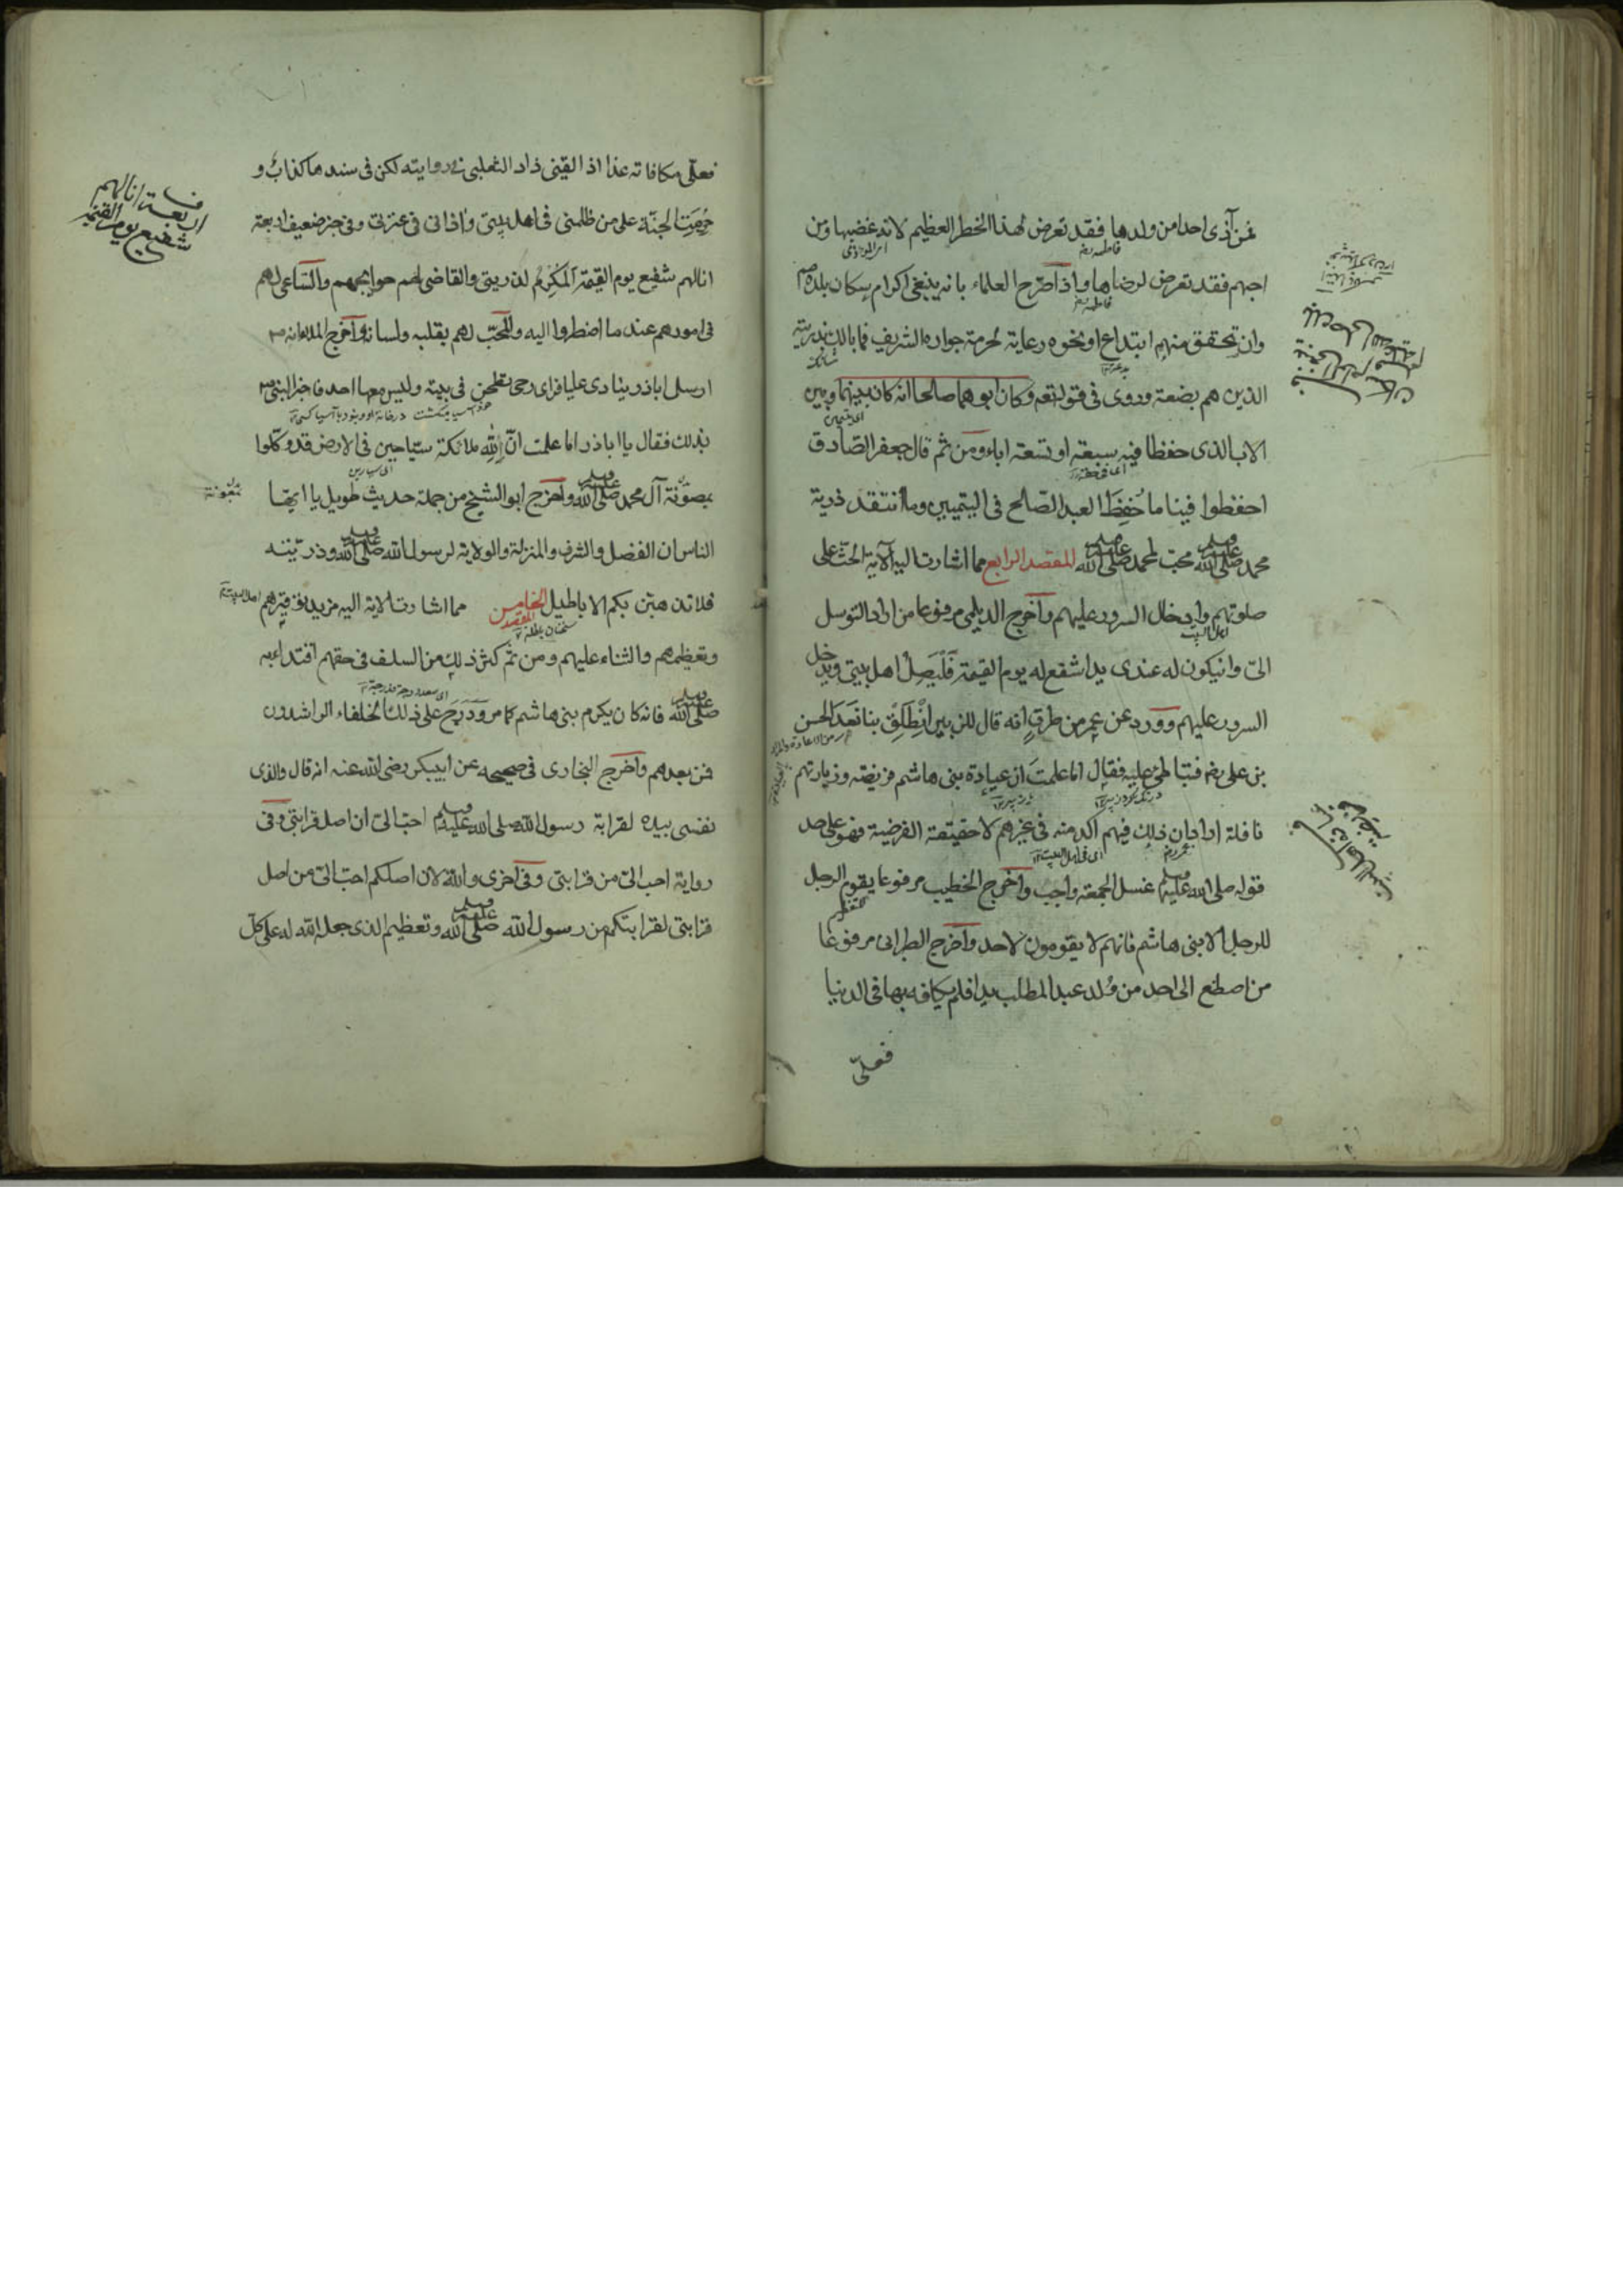 فمن آذى احدا من ولدها فقد تعرض لهذا الخطر العظيم لانه غضبها ومن
احبهم فقد تعرض لرضاها واذا صرح العلماء بانه ينبغى اكرام سكان بلده
وان تحقق منهم ابتداع او نحوه رعاية لحرمة جواره الشريف فما بالك بذريته
الذين هم بضعته وروى فى قوله تعه وكان ابوهما صالحا انه كان بينهما وبين
الاب الذى حفظا فيه سبعة او تسعة اباء ومن ثم قال جعفر الصادق
احفظوا فينا ما حفظ العبد الصالح فى اليتيمين وما انتقد ذرية
محمد صلى الله عليه وسلم محب لمحمد صلى الله عليه وسلم المقصد الرابع مما اشارت اليه الآية الحث على
صلوتهم وادخال السرور عليهم واخرج الديلمى مرفوعا من اراد التوسل
الىّ وان يكون له عندى يد اشفع له يوم القيمة فليصل اهل بيتى ويدخل
السرور عليهم وورد عن عمر من طرق انه قال للزبير انطلق بنا نعد الحسن
بن على رضه فتباطئ عليه فقال اما علمت ان عيادة بنى هاشم فريضة وزيارتهم
نافلة اراد ان ذلك فيهم اكد منه فى غيرهم لا حقيقة الفرضية فهو على حد
قوله صلى الله عليه وسلم غسل الجمعة واجب واخرج الخطيب مرفوعا يقوم الرجل
للرجل الا بنى هاشم فانهم لا يقومون لاحد واخرج الطبرانى مرفوعا
من اصطنع الى احد من ولد عبد المطلب يدا فلم يكافه بها فى الدنيا
فعلىّ
فعلىّ مكافاته غدا اذا لقينى زاد الثعلبى فى روايته لكن فى سندها كذاب و
حرمت الجنة على من ظلمنى فى اهل بيتى واذانى فى عترتى وفى خبر ضعيف اربعة
انا لهم شفيع يوم القيمة المكرم لذريتى والقاضى لهم حوايجهم والساعى لهم
فى امورهم عند ما اضطروا اليه والمحب لهم بقلبه ولسانه واخرج الملا انه
ارسل اباذر ينادى عليا فراى رحى تطحن فى بيته وليس معها احد فاخبر النبى
بذلك فقال يا اباذر اما علمت ان لله ملائكة سياحين فى الارض قد وكلوا
بمعونة آل محمد صلى الله عليه وسلم واخرج ابو الشيخ من جملة حديث طويل يا ايها
الناس ان الفضل والشرف والمنزلة والولاية لرسول الله صلى الله عليه وسلم وذريته
فلا تذهبن بكم الاباطيل المقصد الخامس مما اشارت الاية اليه مزيد توقيرهم
وتعظيمهم والثناء عليهم ومن ثم كثر ذلك من السلف فى حقهم اقتداء به
صلى الله عليه وسلم فانه كان يكرم بنى هاشم كما مر ودرج على ذلك الخلفاء الراشدون
فمن بعدهم واخرج البخارى فى صحيحه عن ابيبكر رضى الله عنه انه قال والذى
نفسى بيده لقرابة رسول الله صلى الله عليه وسلم احب الىّ ان اصل قرابتى وفى
رواية احب الىّ من قرابتى وفى اخرى والله لان اصلكم احب الىّ من اصل
قرابتى لقرابتكم من رسول الله صلى الله عليه وسلم وتعظيم الذى جعل الله له على كل
اربعة انا لهم
شفيع يوم القيمة